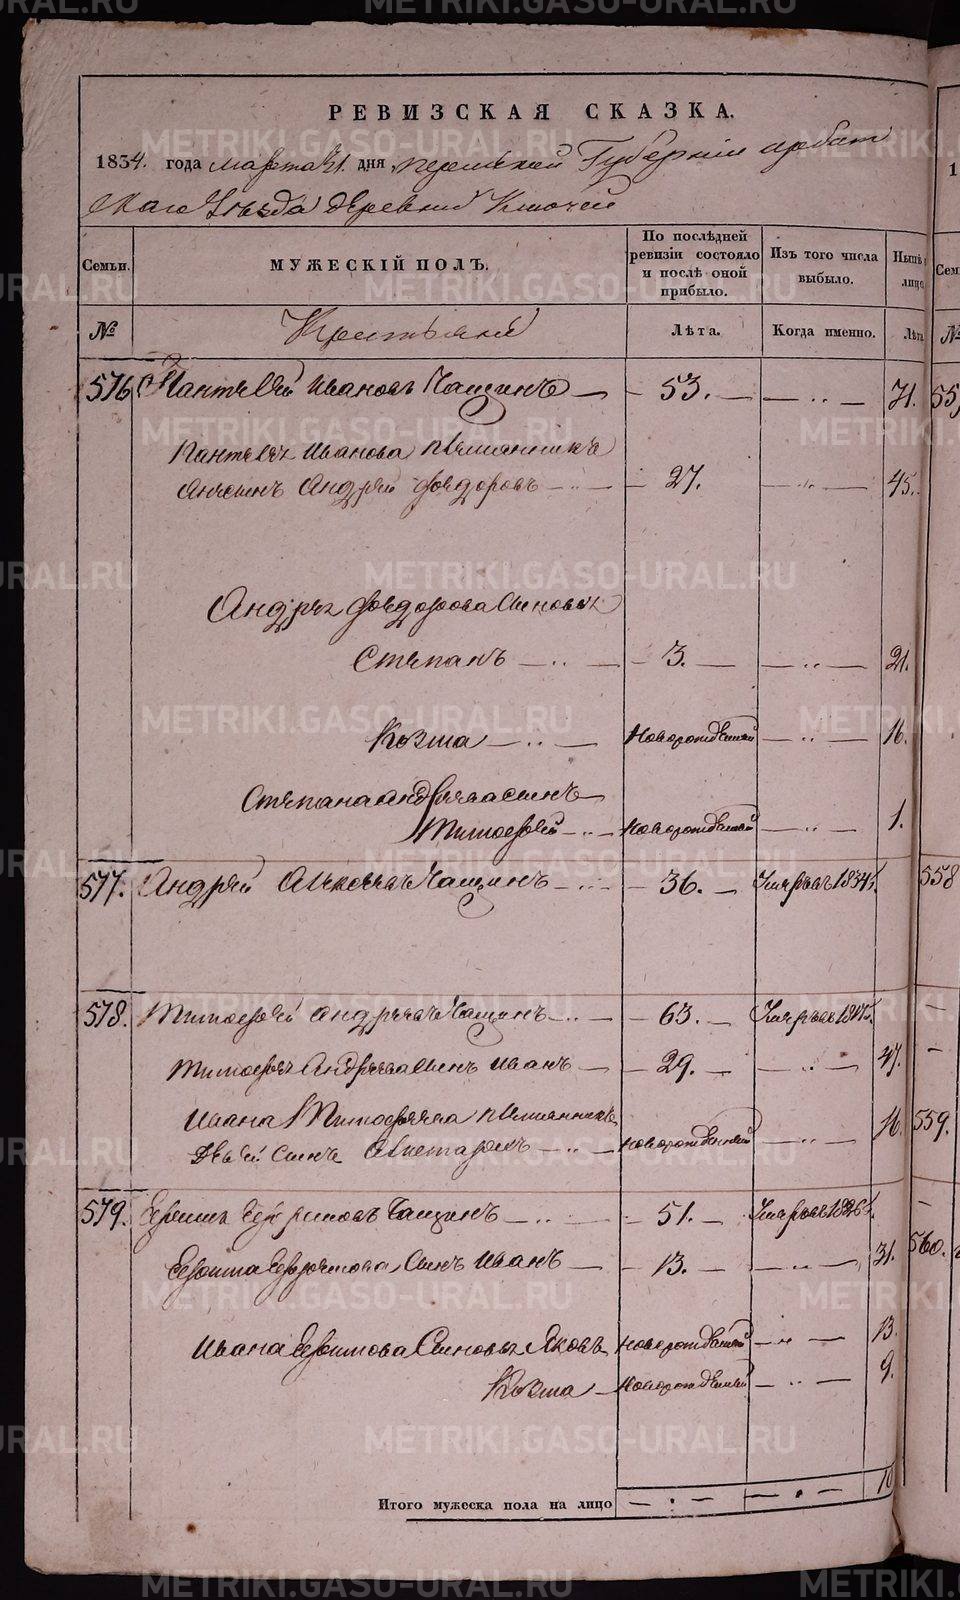 РЕВИЗСКАЯ СКАЗКА.
1834. года марта 21. дня, пермской Губернии ирбит
скаго Уезда деревни Ключей
Семьи. МУЖЕСКІЙ ПОЛЪ. По послѣдней ревизіи состояло и послѣ оной прибыло. Изъ того числа выбыло. Нынѣ лицо
№ Крестьяне Лѣта. Когда именно. Лѣта
576 Пантелей Ивановъ Чащинъ — 53. — — „ — 71.
Пантелея Иванова племянникъ
Андрей Федоровъ — „ — 27. — „ — 45.
Андрея Федорова сыновья
Степанъ — „ — 3. — — „ — 21.
Козма — „ — новорожденный — „ — 16.
Степана андреева сынъ
Тимофей — „ — новорожденный — „ — 1.
577. Андрей Алексеевъ Чащинъ — „ — 36. — Умре въ 1834 558
578. Тимофей андреевъ Чащинъ — „ — 63. — Умре въ
Тимофея Андреева сынъ Иванъ — 29. — — „ — 47.
Ивана Тимофеева племянникъ 559.
сынъ — „ — новорожденный — „ — 16.
579. Чащинъ — „ — 51. — Умре въ 1826
сынъ Иванъ — 13. — — „ — 31. 560.
Ивана Ефимова сыновья Яковъ новорожденный — „ — 13.
Козма — новорожденный — „ — 9.
Итого мужеска пола на лицо — : — — • — 10
METRIKI.GASO-URAL.RU